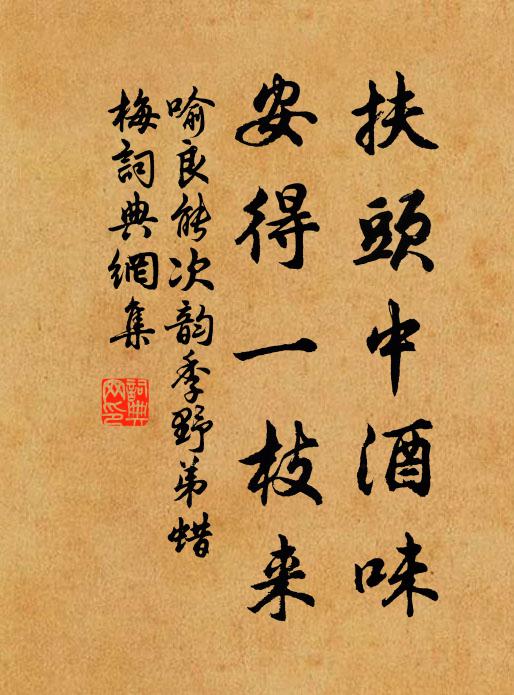 扶頭中酒味
安得一枝来
喻良能次韵季野弟蜡
梅詞典網集
詞典网印